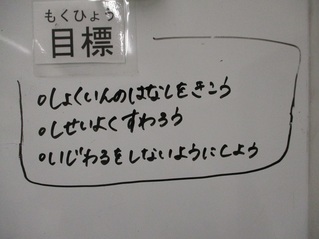 もくひょう
目標
○しょくいんのはなしをきこう
○しせいよくすわろう
○いじわるをしないようにしよう